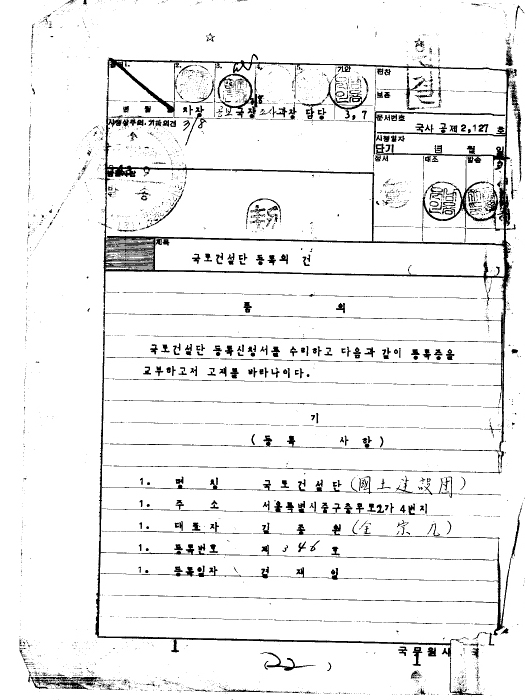 기안
차장 공보국장 조사과장 담당 3, 7
년 월 일
3/8
문서번호
국사 공제 2,127 호
시행일자
단기 년 월 일
정서 대조 발송
제목
국토건설단 등록의 건
품 의
국토건설단 등록신청서를 수리하고 다음과 같이 등록증을
교부하고저 고재를 바라나이다.
기
(등 록 사 항)
1. 명 칭 국토건설단 (國土建設団)
1. 주 소 서울특별시중구충무로2가 4번지
1. 대표자 김종원
1. 등록번호 제 346 호
1. 등록일자 결 재 일
22
국무원사